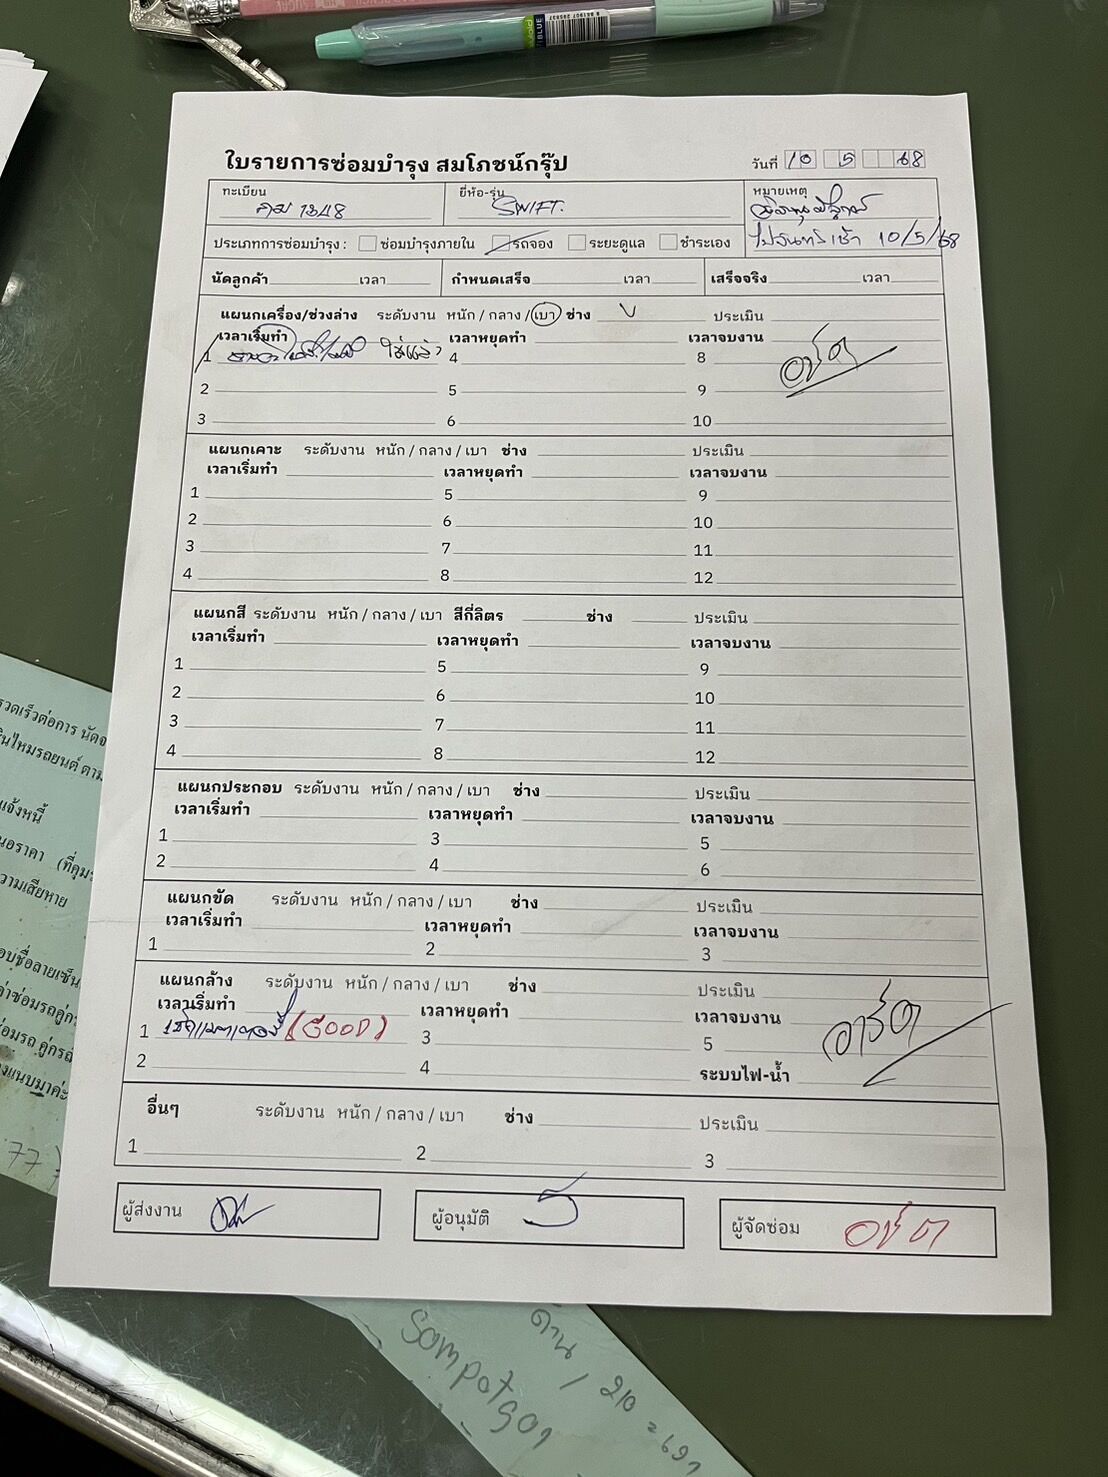 ใบรายการซ่อมบำรุง สมโภชน์กรุ๊ป
วันที่ 10 5 68
ทะเบียน
1348
ยี่ห้อ-รุ่น
SWIFT.
หมายเหตุ
10/5/68
ประเภทการซ่อมบำรุง : ซ่อมบำรุงภายใน รถจอง ระยะดูแล ชำระเอง
นัดลูกค้า เวลา กำหนดเสร็จ เวลา เสร็จจริง เวลา
แผนกเครื่อง/ช่วงล่าง ระดับงาน หนัก / กลาง / เบา ช่าง ประเมิน
เวลาเริ่มทำ เวลาหยุดทำ เวลาจบงาน
1 ใส่แล้ว 4 8
2 5 9
3 6 10
แผนกเคาะ ระดับงาน หนัก / กลาง / เบา ช่าง ประเมิน
เวลาเริ่มทำ เวลาหยุดทำ เวลาจบงาน
1 5 9
2 6 10
3 7 11
4 8 12
แผนกสี ระดับงาน หนัก / กลาง / เบา สีกี่ลิตร ช่าง ประเมิน
เวลาเริ่มทำ เวลาหยุดทำ เวลาจบงาน
1 5 9
2 6 10
3 7 11
4 8 12
แผนกประกอบ ระดับงาน หนัก / กลาง / เบา ช่าง ประเมิน
เวลาเริ่มทำ เวลาหยุดทำ เวลาจบงาน
1 3 5
2 4 6
แผนกขัด ระดับงาน หนัก / กลาง / เบา ช่าง ประเมิน
เวลาเริ่มทำ เวลาหยุดทำ เวลาจบงาน
1 2 3
แผนกล้าง ระดับงาน หนัก / กลาง / เบา ช่าง ประเมิน
เวลาเริ่มทำ เวลาหยุดทำ เวลาจบงาน
1 (GOOD) 3 5
2 4 ระบบไฟ-น้ำ
อื่นๆ ระดับงาน หนัก / กลาง / เบา ช่าง ประเมิน
1 2 3
ผู้ส่งงาน
ผู้อนุมัติ
ผู้จัดซ่อม
แจ้งหนี้
ความเสียหาย
77
ด้าน / 210 =